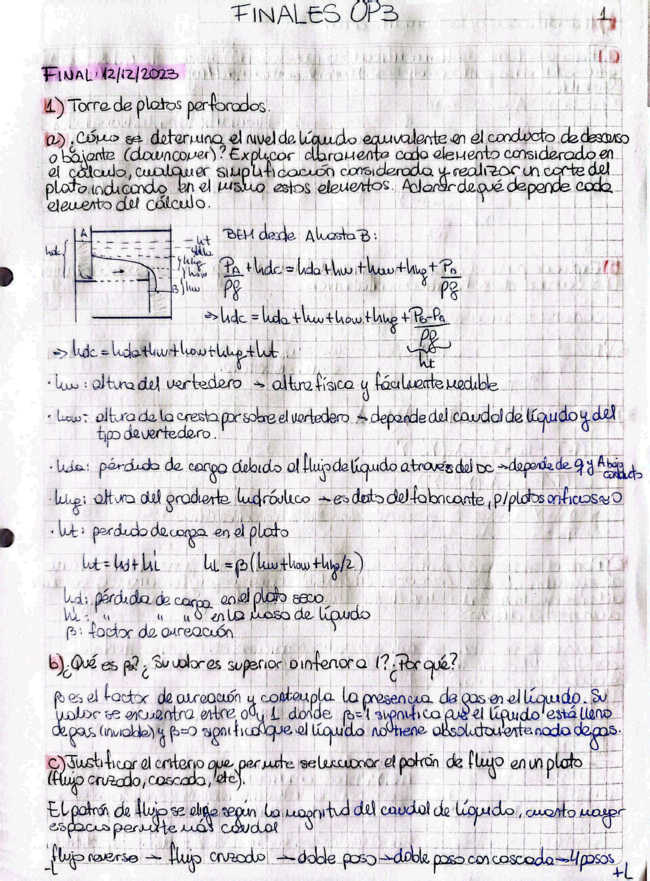 FINALES OP3
1
FINAL 12/12/2023
1) Torre de platos perforados.
a) ¿Cómo se determina el nivel de líquido equivalente en el conducto de descenso
o bajante (downcomer)? Explicar claramente cada elemento considerado en
el cálculo, cualquier simplificación considerada y realizar un corte del
plato indicando en el mismo estos elementos. Aclarar de qué depende cada
elemento del cálculo.
A
hdc
ht
hda
hhg
how
B
hw
BEM desde A hasta B:
PA/ρg + hdc = hda + hw + how + hhg + PB/ρg
⇒ hdc = hda + hw + how + hhg + (PB-PA)/ρg
ht
⇒ hdc = hda + hw + how + hhg + ht
· hw: altura del vertedero → altura física y fácilmente medible
· how: altura de la cresta por sobre el vertedero → depende del caudal de líquido y del
tipo de vertedero.
· hda: pérdida de carga debido al flujo de líquido a través del DC → depende de q y A bajo conducto
· hhg: altura del gradiente hidráulico → es dato del fabricante, p/platos orificios ≈ 0
· ht: perdida de carga en el plato
ht = hd + hl'    hl = β (hw + how + hhg/2)
hd: pérdida de carga en el plato seco
hl': " " " en la masa de líquido
β: factor de aireación
b) ¿Qué es β? ¿Su valor es superior o inferior a 1? ¿Por qué?
β es el factor de aireación y contempla la presencia de gas en el líquido. Su
valor se encuentra entre 0 y 1 donde β=1 significa que el líquido está lleno
de gas (inviable) y β=0 significa que el líquido no tiene absolutamente nada de gas.
c) Justificar el criterio que permite seleccionar el patrón de flujo en un plato
(flujo cruzado, cascada, etc).
El patrón de flujo se elige según la magnitud del caudal de líquido, cuanto mayor
espacio permite más caudal
flujo reverso → flujo cruzado → doble paso → doble paso con cascada → 4 pasos
-L
+L